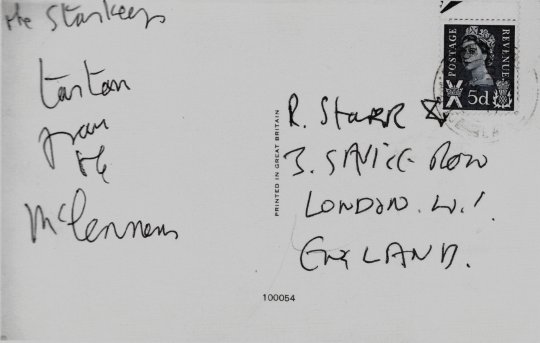 the Starkeys
tartan
from
the
McLennons
R. STARR
3. SAVILE ROW
LONDON. W.1.
ENGLAND.
POSTAGE
REVENUE
5d
PRINTED IN GREAT BRITAIN
100054